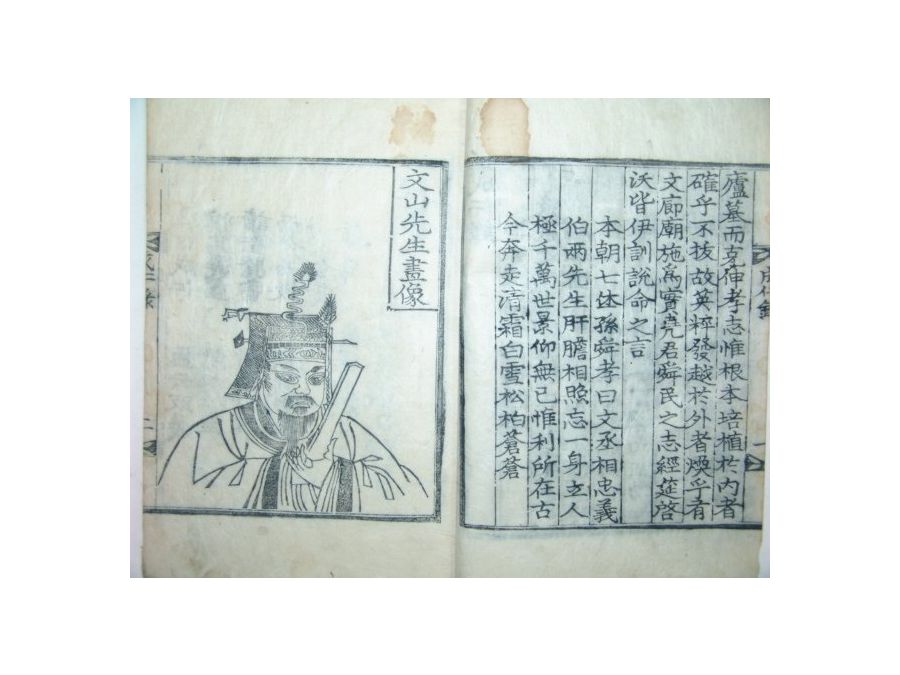 廬墓而哀伸孝志惟根本培植於內者
確乎不拔故英粹發越於外者煥乎有
文廊廟施爲實堯君舜民之志經筵啓
沃皆伊訓說命之言
本朝七休孫舜孝曰文丞相忠義
伯兩先生肝膽相照忘一身立人
極千萬世景仰無已惟利所在古
今奔走清霜白雪松柏蒼蒼
文山先生畫像